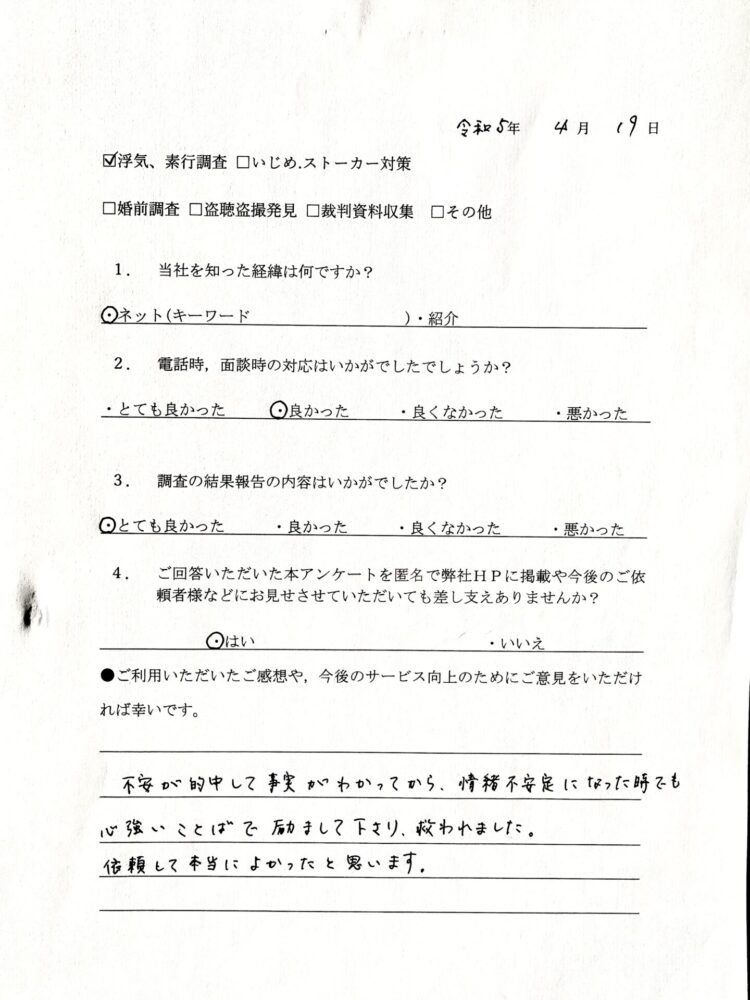 令和5年 4月 19日
☑浮気、素行調査 □いじめ.ストーカー対策
□婚前調査 □盗聴盗撮発見 □裁判資料収集 □その他
1. 当社を知った経緯は何ですか？
・ネット(キーワード )・紹介
2. 電話時，面談時の対応はいかがでしたでしょうか？
・とても良かった ・良かった ・良くなかった ・悪かった
3. 調査の結果報告の内容はいかがでしたか？
・とても良かった ・良かった ・良くなかった ・悪かった
4. ご回答いただいた本アンケートを匿名で弊社ＨＰに掲載や今後のご依
頼者様などにお見せさせていただいても差し支えありませんか？
・はい ・いいえ
●ご利用いただいたご感想や，今後のサービス向上のためにご意見をいただけ
れば幸いです。
不安が的中して事実がわかってから、情緒不安定になった時でも
心強いことばで励まして下さり、救われました。
依頼して本当によかったと思います。